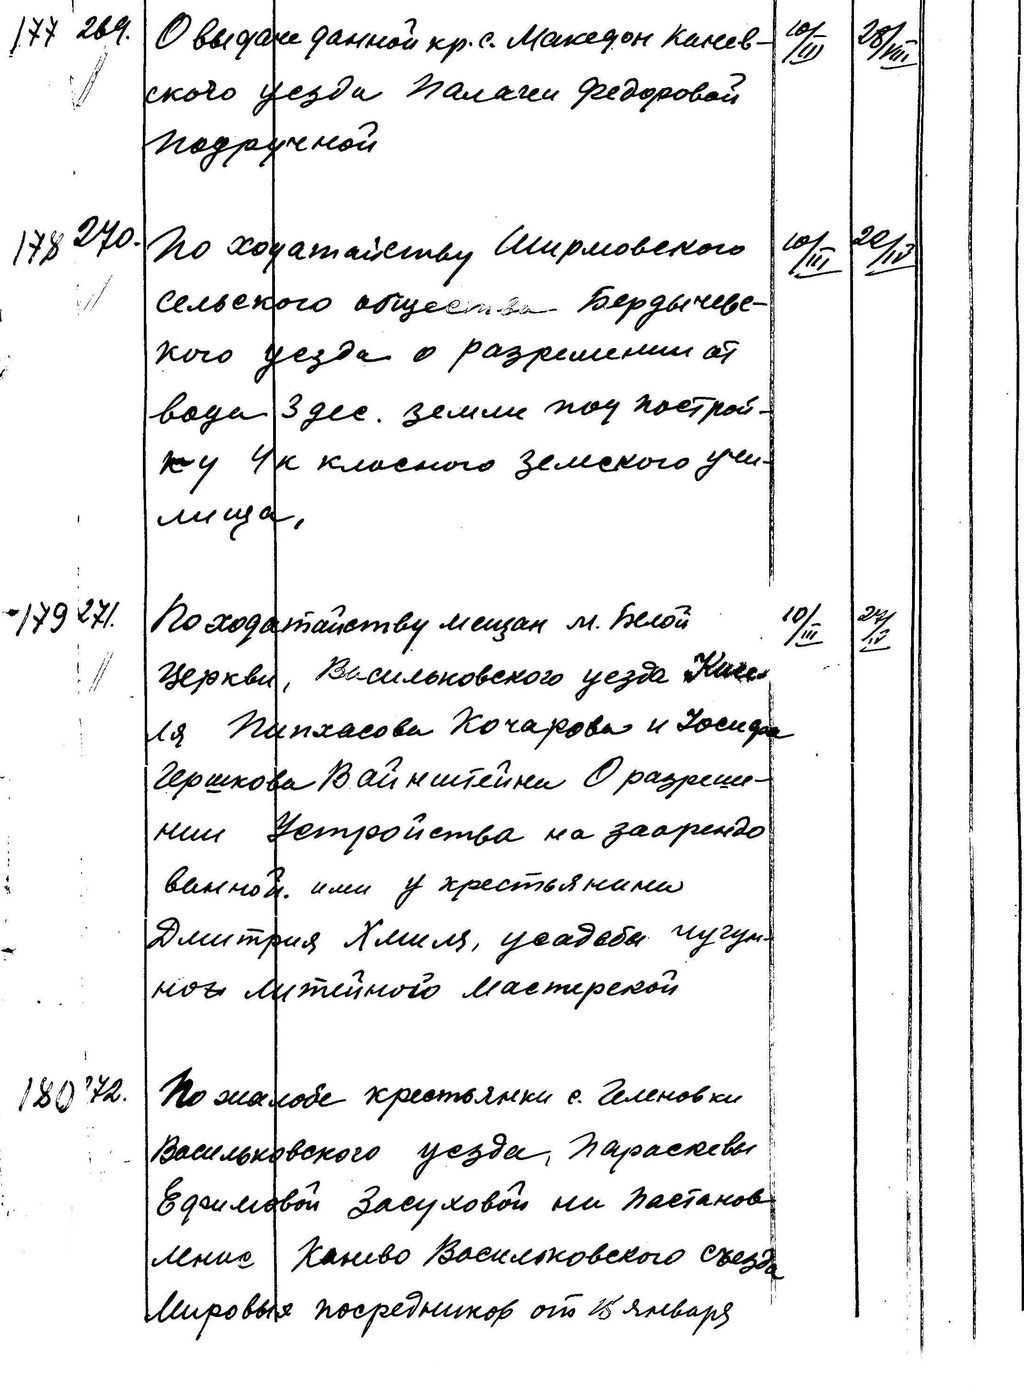 177 269. О выдаче данной кр. с. Македон Канев- 10/III 28/VIII
ского уезда Палагеи Федоровой
Подручной
178 270. По ходатайству Ширмовского 10/III 20/IV
сельского общества Бердычевс-
кого уезда о разрешении от
вода 3 дес. земли под построй-
ку 4х класного земского учи-
лища,
179 271. По ходатайству мещан м. Белой 10/III 27/IV
Церкви, Васильковского уезда Кисе
ля Пинхасова Кочарова и Иосифа
Гершкова Вайнштейна О разреше-
нии Устройства на заарендо
ванной. ими у крестьянина
Дмитрия Хмиля, усадьбы чугун-
ной литейного мастерской
180 272. По жалобе крестьянки с. Геленовки
Васильковского уезда, Параскевы
Ефимовой Засуховой на Постанов
ление Канево Васильковского съезда
Мировых посредников от 15 января